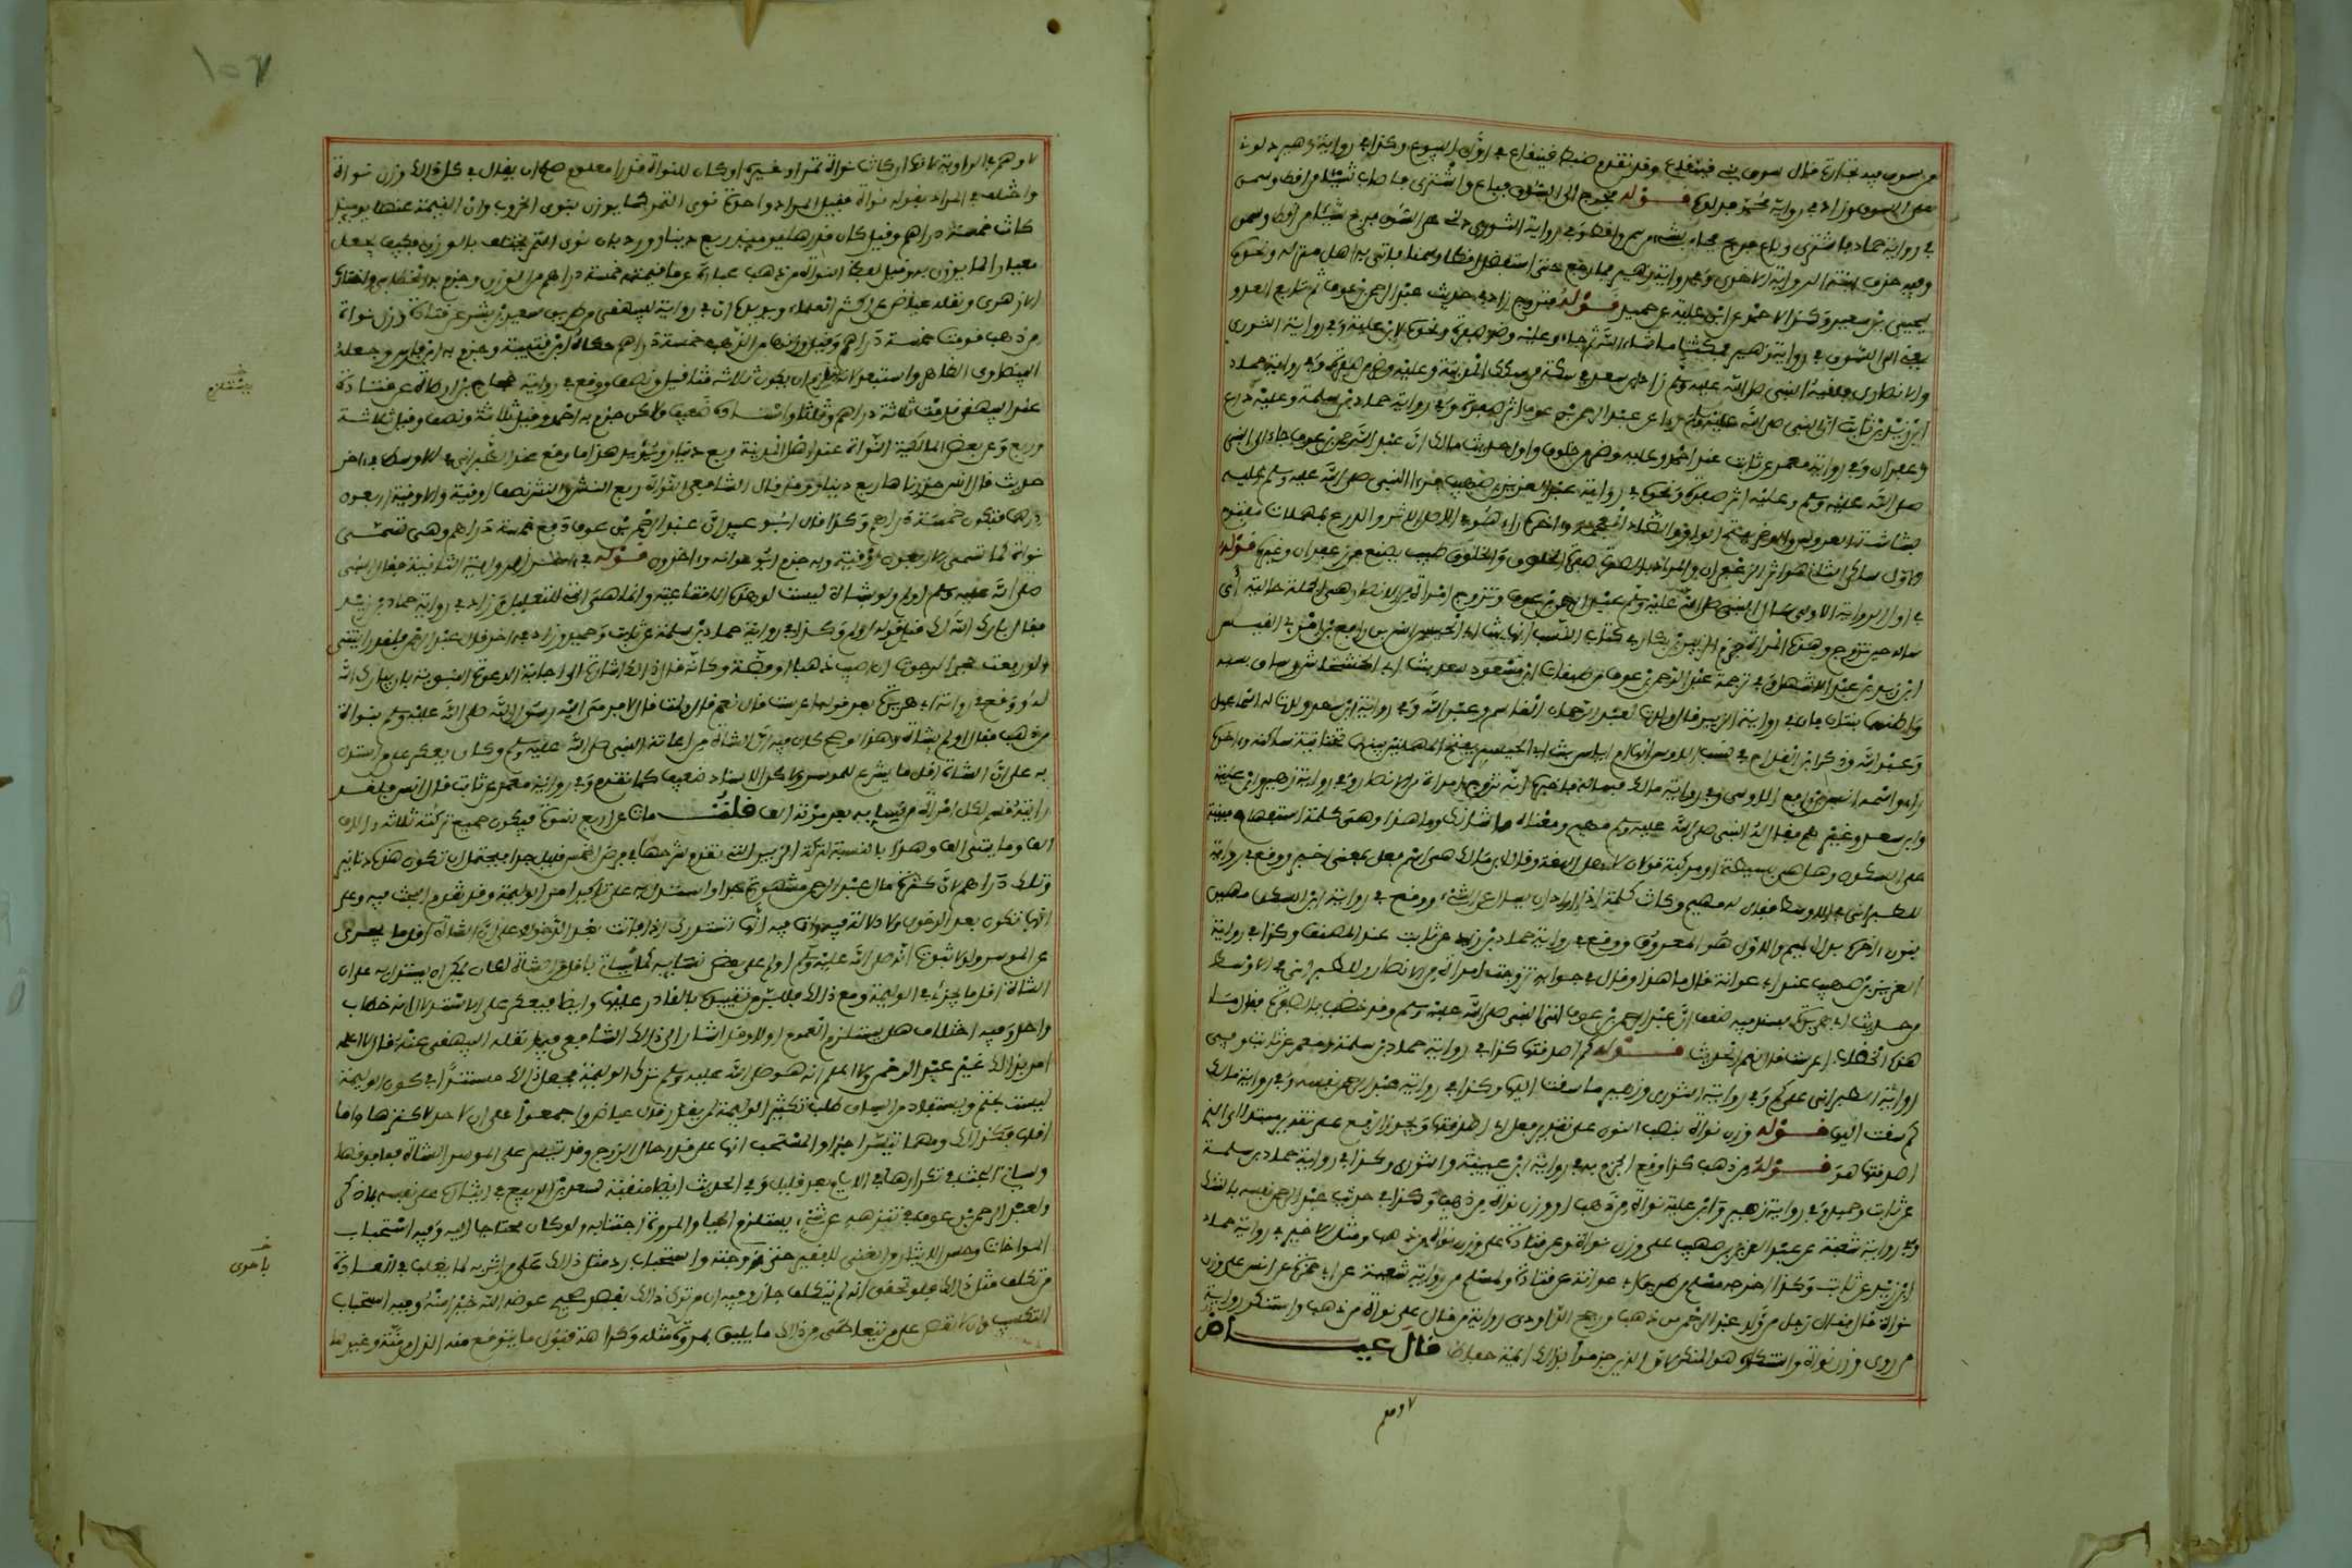 من سوق فيه تجارة قال سوق بني قينقاع وقد تقدم ضبط قينقاع في أول البيوع وكذا في رواية زهير دلوني
على السوق زاد في رواية حماد فدلوه قوله فخرج إلى السوق فباع واشترى فأصاب شيئا من أقط وسمن
في رواية حماد فاشترى وباع فربح فجاء بشيء من سمن وأقط وفي رواية الثوري دلني على السوق فربح شيئا من أقط وسمن
وفيه حذف بينته الرواية الأخرى وفي رواية زهير فما رجع حتى استفضل أقطا وسمنا فأتى به أهل منزله ونحوه
ليحيى بن سعيد وكذا لأحمد عن ابن علية عن حميد قوله فتزوج زاد في حديث عبد الرحمن بن عوف ثم تابع الغدو
يعني إلى السوق في رواية زهير فمكثنا ما شاء الله ثم جاء وعليه وضر صفرة ونحوه لابن علية وفي رواية الثوري
والأنصاري فلقيه النبي صلى الله عليه وسلم زاد ابن سعد في سكة من سكك المدينة وعليه وضر من صفرة وفي رواية حماد
ابن زيد عن ثابت أن النبي صلى الله عليه وسلم رأى على عبد الرحمن بن عوف أثر صفرة وفي رواية حماد بن سلمة وعليه ردع
زعفران وفي رواية معمر عن ثابت عند أحمد وعليه وضر من خلوق وأول حديث مالك أن عبد الرحمن بن عوف جاء إلى النبي
صلى الله عليه وسلم وعليه أثر صفرة ونحوه في رواية عبد العزيز بن صهيب فرأى النبي صلى الله عليه وسلم عليه
بشاشة العروس والوضر بفتح الواو والضاد المعجمة وآخره راء هو في الأصل الأثر والردع بمهملات مفتوح
الأول ساكن الثاني هو أثر الزعفران والمراد بالصفرة صفرة الخلوق والخلوق طيب يصنع من زعفران وغيره قوله
في أول الرواية الأولى سأل النبي صلى الله عليه وسلم عبد الرحمن بن عوف وتزوج امرأة من الأنصار هي جملة حالية أي
سأله حين تزوج وهذه المرأة جزم الزبير بن بكار في كتاب النسب أنها بنت أبي الحيسر أنس بن رافع بن امرئ القيس
ابن زيد بن عبد الأشهل وفي ترجمة عبد الرحمن بن عوف من طبقات ابن سعد أنها بنت أبي الحشحاش وساق نسبه
وأظنهما ثنتين فإن في رواية الزبير قال ولدت لعبد الرحمن القاسم وعبد الله وفي رواية ابن سعد ولدت له إسماعيل
وعبد الله وذكر ابن القداح في نسب الأوس أنها أم إياس بنت أبي الحيسر بفتح المهملتين بينهما تحتانية ساكنة وآخره
راء واسمه أنس بن رافع الأوسي وفي رواية مالك فسأله فأخبره أنه تزوج امرأة من الأنصار وفي رواية زهير وابن علية
وابن سعد وغيرهم فقال له النبي صلى الله عليه وسلم مهيم ومعناه ما شأنك وما هذا وهي كلمة استفهام مبنية
على السكون وهل هي بسيطة أو مركبة قولان لأهل اللغة وقال ابن مالك هي اسم فعل بمعنى أخبر ووقع في رواية
للطبراني في الأوسط فقال له مهيم وكانت كلمته إذا أراد أن يسأل عن الشيء ووقع في رواية ابن السكن مهين
بنون آخره بدل الميم والأول هو المعروف ووقع في رواية حماد بن زيد عن ثابت عند المصنف وكذا في رواية
العزيز بن صهيب عند أبي عوانة قال ما هذا وقال في جوابه تزوجت امرأة من الأنصار وللطبراني في الأوسط
من حديث أبي هريرة بسند فيه ضعف أن عبد الرحمن بن عوف أتى النبي صلى الله عليه وسلم وقد خضب بالصفرة فقال ما
هذا الخضاب أعرست قال نعم الحديث قوله كم أصدقتها كذا في رواية حماد بن سلمة ومعمر عن ثابت وفي
رواية الطبراني على كم وفي رواية الثوري وزهير ما سقت إليها وكذا في رواية عبد الرحمن نفسه وفي رواية مالك
كم سقت إليها قوله وزن نواة بنصب النون على تقدير فعل أي أصدقتها ويجوز الرفع على تقدير مبتدإ أي الذي
أصدقتها هو قوله من ذهب كذا وقع الجزم به في رواية ابن عيينة والثوري وكذا في رواية حماد بن سلمة
عن ثابت وحميد وفي رواية زهير وابن علية نواة من ذهب أو وزن نواة من ذهب وكذا في حديث عبد الرحمن نفسه بالشك
وفي رواية شعبة عن عبد العزيز بن صهيب على وزن نواة وعن قتادة على وزن نواة من ذهب ومثل الأخير في رواية حماد
ابن زيد عن ثابت وكذا أخرجه مسلم من طريق أبي عوانة عن قتادة ولمسلم من رواية شعبة عن أبي حمزة عن أنس على وزن
نواة قال فقال رجل من ولد عبد الرحمن من ذهب ورجح الداودي رواية من قال على نواة من ذهب واستنكر رواية
من روى وزن نواة واستنكاره هو المنكر لأن الذين جزموا بذلك أئمة حفاظ قال عياض
لا وهم
لا وهم في الرواية لأنها إن كانت نواة تمر أو غيره أو كان للنواة قدر معلوم صلح أن يقال في كل ذلك وزن نواة
واختلف في المراد بقوله نواة فقيل المراد واحدة نوى التمر كما يوزن بنوى الخروب وأن القيمة عنها يومئذ
كانت خمسة دراهم وقيل كان قدرها يومئذ ربع دينار ورد بأن نوى التمر يختلف في الوزن فكيف يجعل
معيارا لما يوزن به وقيل لفظ النواة من ذهب عبارة عما قيمته خمسة دراهم من الورق وجزم به الخطابي واختاره
الأزهري ونقله عياض عن أكثر العلماء ويؤيده أن في رواية للبيهقي من طريق سعيد بن بشير عن قتادة وزن نواة
من ذهب قومت خمسة دراهم وقيل وزنها من الذهب خمسة دراهم حكاه ابن قتيبة وجزم به ابن فارس وجعله
البيضاوي الظاهر واستبعد لأنه يلزم أن يكون ثلاثة مثاقيل ونصف ووقع في رواية حجاج بن أرطاة عن قتادة
عند البيهقي قومت ثلاثة دراهم وثلثا وإسناده ضعيف ولكن جزم به أحمد وقيل ثلاثة ونصف وقيل ثلاثة
وربع وعن بعض المالكية النواة عند أهل المدينة ربع دينار ويؤيد هذا ما وقع عند الطبراني في الأوسط في آخر
حديث قال أنس حزرناها ربع دينار وقد قال الشافعي النواة ربع النش والنش نصف أوقية والأوقية أربعون
درهما فتكون خمسة دراهم وكذا قال أبو عبيد أن عبد الرحمن بن عوف دفع خمسة دراهم وهي تسمى
نواة كما تسمى الأربعون أوقية وبه جزم أبو عوانة وآخرون قوله في آخر الرواية الثانية فقال النبي
صلى الله عليه وسلم أولم ولو بشاة ليست لو هذه الامتناعية وإنما هي التي للتقليل وزاد في رواية حماد بن زيد
فقال بارك الله لك قبل قوله أولم وكذا في رواية حماد بن سلمة عن ثابت وحميد وزاد في آخره قال عبد الرحمن فلقد رأيتني
ولو رفعت حجرا لرجوت أن أصيب ذهبا أو فضة وكأنه قال ذلك إشارة إلى إجابة الدعوة النبوية بأن يبارك الله
له ووقع في رواية أبي هريرة بعد قوله أعرست قال نعم قال أولمت قال لا فرمى إليه رسول الله صلى الله عليه وسلم بنواة
من ذهب فقال أولم بشاة وهذا لو صح كان فيه أن الشاة من إعانة النبي صلى الله عليه وسلم وكان يعكر على من استدل
به على أن الشاة أقل ما يشرع للموسر ولكن الإسناد ضعيف كما تقدم وفي رواية معمر عن ثابت قال أنس فلقد
رأيته قسم لكل امرأة من نسائه بعد موته ألف قلت مات عن أربع نسوة فيكون جميع تركته ثلاثة آلاف
ألف ومايتي ألف وهذا بالنسبة لتركة الزبير التي تقدم شرحها في فرض الخمس قليل جدا فيحتمل أن تكون هذه دنانير
وتلك دراهم لأن كثرة مال عبد الرحمن مشهورة جدا واستدل به على تأكيد أمر الوليمة وقد تقدم البحث فيه وعلى
أنها تكون بعد الدخول ولا دلالة فيه وإنما فيه أنها تستدرك إذا فاتت بعد الدخول وعلى أن الشاة أقل ما يجزئ
عن الموسر ولولا ثبوت أنه صلى الله عليه وسلم أولم على بعض نسائه كما سيأتي بأقل من الشاة لكان يمكن أن يستدل به على أن
الشاة أقل ما يجزئ في الوليمة ومع ذلك فلا بد من تقييده بالقادر عليها وأيضا فيعكر على الاستدلال أنه خطاب
واحد وفيه اختلاف هل يستلزم العموم أو لا وقد أشار إلى ذلك الشافعي فيما نقله البيهقي عنه قال لا أعلمه
أمر بذلك غير عبد الرحمن ولا أعلم أنه هو صلى الله عليه وسلم ترك الوليمة فجعل ذلك مستندا في كون الوليمة
ليست بحتم ويستفاد من السياق طلب تكثير الوليمة لمن يقدر قال عياض وأجمعوا على أن لا حد لأكثرها وأما
أقلها فكذلك ومهما تيسر أجزأ والمستحب أنها على قدر حال الزوج وقد تيسر على الموسر الشاة فما فوقها
وسيأتي البحث في تكرارها في الأيام بعد قليل وفي الحديث أيضا منقبة لسعد بن الربيع في إيثاره على نفسه بما ذكر
ولعبد الرحمن بن عوف في تنزهه عن شيء يستلزم الحياء والمروءة اجتنابه ولو كان محتاجا إليه وفيه استحباب
المواخات وحسن الإيثار من الغني للفقير حتى بإحدى زوجتيه واستحباب رد مثل ذلك على من آثر به لما يغلب في العادة
من تكلف مثل ذلك فلو تحقق أنه لم يتكلف جاز وفيه أن من ترك ذلك بقصد صحيح عوضه الله خيرا منه وفيه استحباب
التكسب وأن لا نقص على من يتعاطى من ذلك ما يليق بمروءة مثله وكراهة قبول ما يتوقع منه الذل من هبة وغيرها
يستلزم
بإحدى